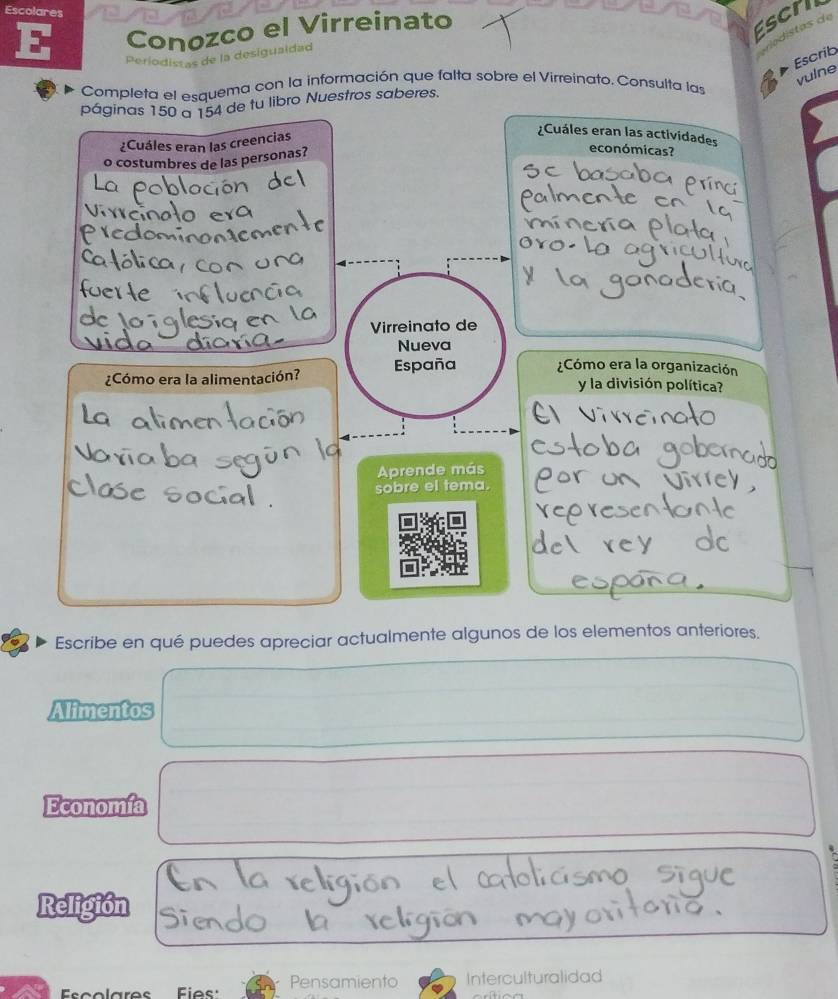 Escolares
E
Conozco el Virreinato
Periodistas de la desigualdad
Completa el esquema con la información que falta sobre el Virreinato. Consulta las
páginas 150 a 154 de tu libro Nuestros saberes.
¿Cuáles eran las creencias
o costumbres de las personas?
La pobloción del
Virreinato era
predominontemente
Católica, con una
fuerte influencia
de la iglesia en la
vida diaria.
¿Cuáles eran las actividades
económicas?
se basaba princi
palmente en la
mineria plata,
oro. La agricultura
y la ganaderia.
Virreinato de
Nueva
España
¿Cómo era la alimentación?
La alimentación
Variaba según la
clase social.
¿Cómo era la organización
y la división política?
El virreinato
estoba gobernado
por un virrey,
representante
del rey de
españa.
Aprende más
sobre el tema.
Escribe en qué puedes apreciar actualmente algunos de los elementos anteriores.
Alimentos
Economía
Religión
En la religión el catolicismo sigue
siendo la religión mayoritaria.
Escolares
Ejes:
Pensamiento
Interculturalidad
Escrib
vulne